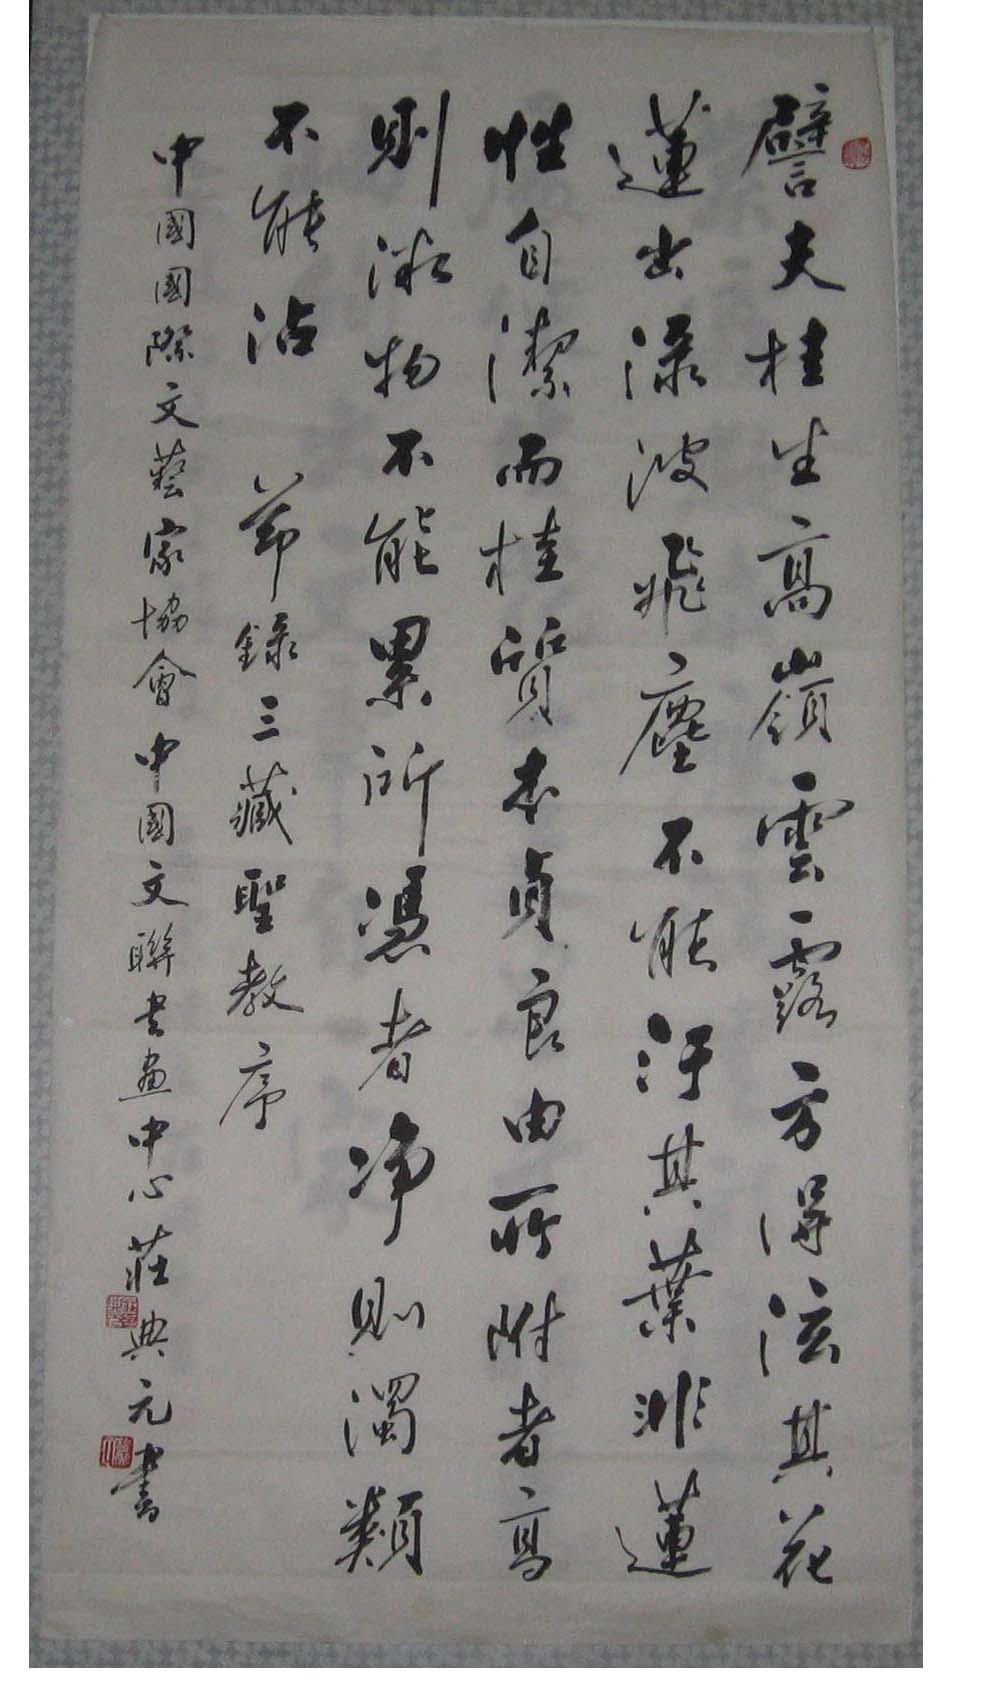 譬夫桂生高嶺雲露方得泫其花
蓮出淥波飛塵不能汙其葉非蓮
性自潔而桂質本貞良由所附者高
則微物不能累所憑者净則濁類
不能沾 節錄三藏聖教序
中國國際文藝家協會中國文聯书画中心莊典元書